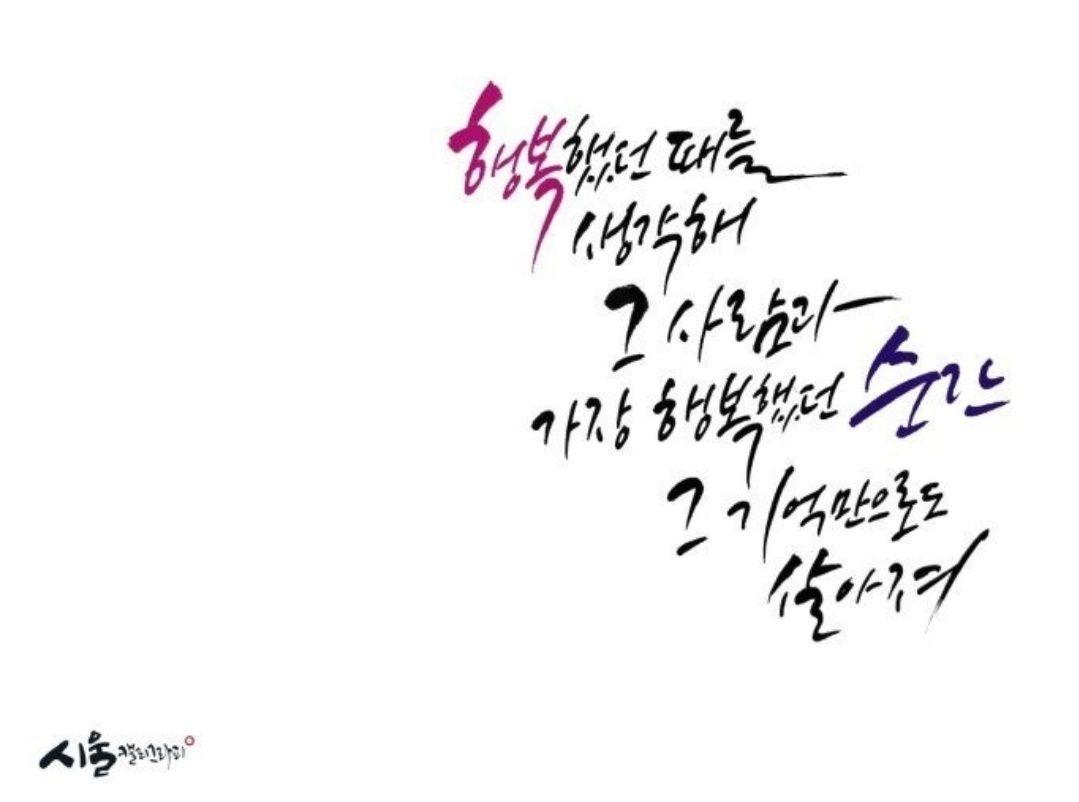 행복했던 때를
생각해
그 사람과
가장 행복했던 순간
그 기억만으로도
살아져
시울 캘리그라피